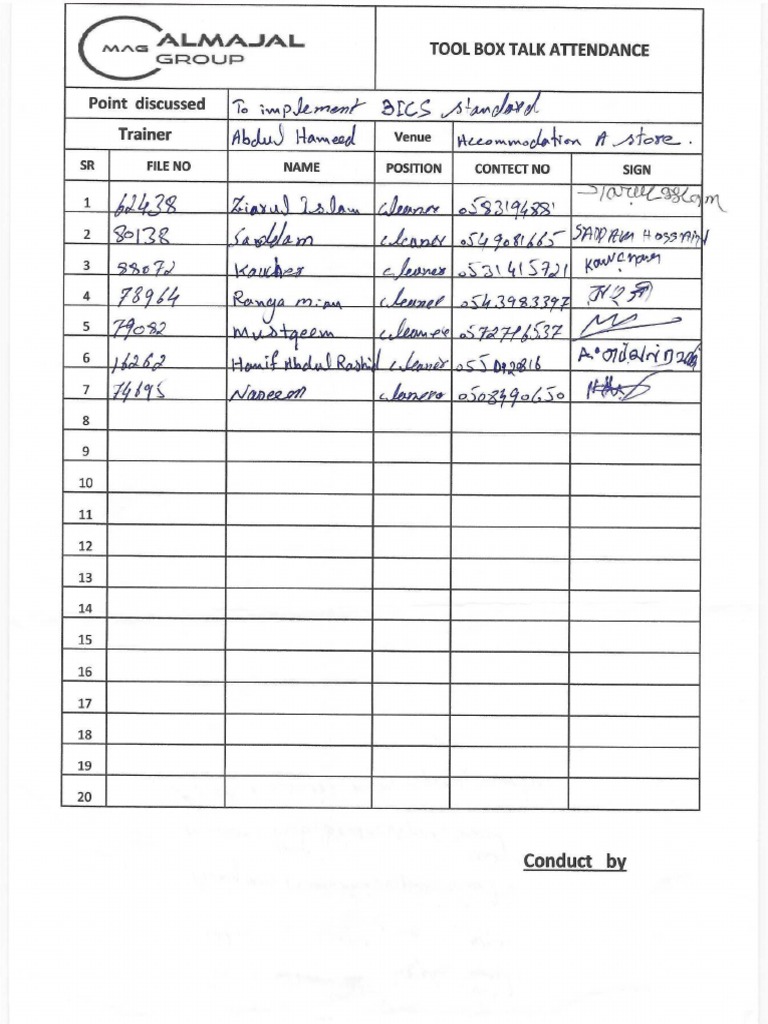 MAG ALMAJAL GROUP
TOOL BOX TALK ATTENDANCE
Point discussed To implement BICS standard
Trainer Abdul Hameed Venue Accommodation A store.
SR FILE NO NAME POSITION CONTECT NO SIGN
1 62438 Ziarul Islam cleaner 058319488
2 80138 Saddam cleaner 0549081665 SADDAM Hossain
3 88072 Kaucher cleaner 0531415721
4 78964 Ranga mian cleaner 0543983397
5 79082 Mustqeem 0572716537
6 16262 Hanif Abdul Rashid cleaner
7 74695 Naseem 0508490650
8
9
10
11
12
13
14
15
16
17
18
19
20
Conduct by